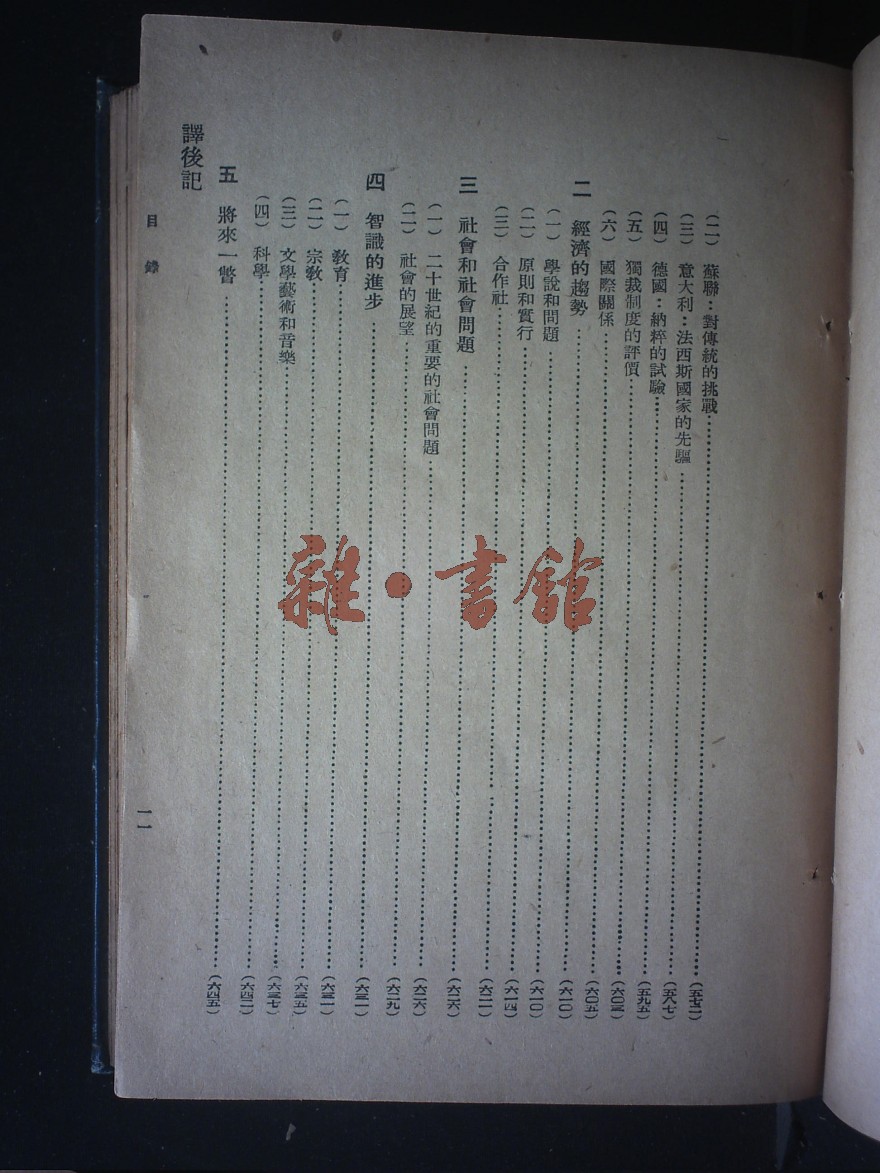 (二) 蘇聯:對傳統的挑戰……(五七二)
(三) 意大利:法西斯國家的先驅……(五八七)
(四) 德國:納粹的試驗……(五九五)
(五) 獨裁制度的評價……(六〇三)
(六) 國際關係……(六〇五)
二 經濟的趨勢……(六一〇)
(一) 學說和問題……(六一〇)
(二) 原則和實行……(六一四)
(三) 合作社……(六二一)
三 社會和社會問題……(六二六)
(一) 二十世紀的重要的社會問題……(六二六)
(二) 社會的展望……(六二九)
四 智識的進步……(六三一)
(一) 教育……(六三一)
(二) 宗教……(六三五)
(三) 文學藝術和音樂……(六三七)
(四) 科學……(六四二)
五 將來一瞥……(六四五)
譯後記
目錄
一一
雜·書館